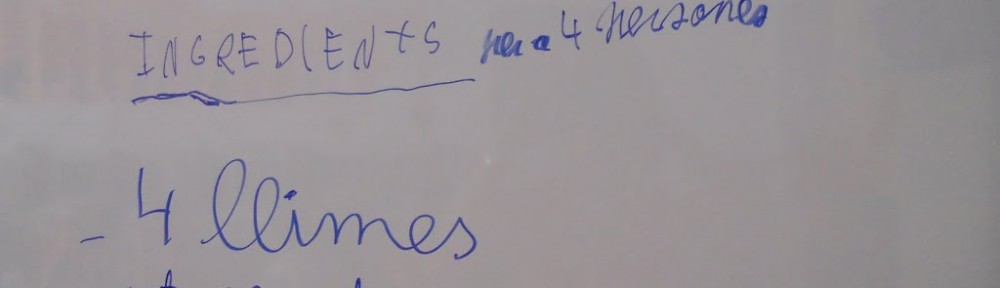 INGREDIENTS per a 4 persones
- 4 llimes